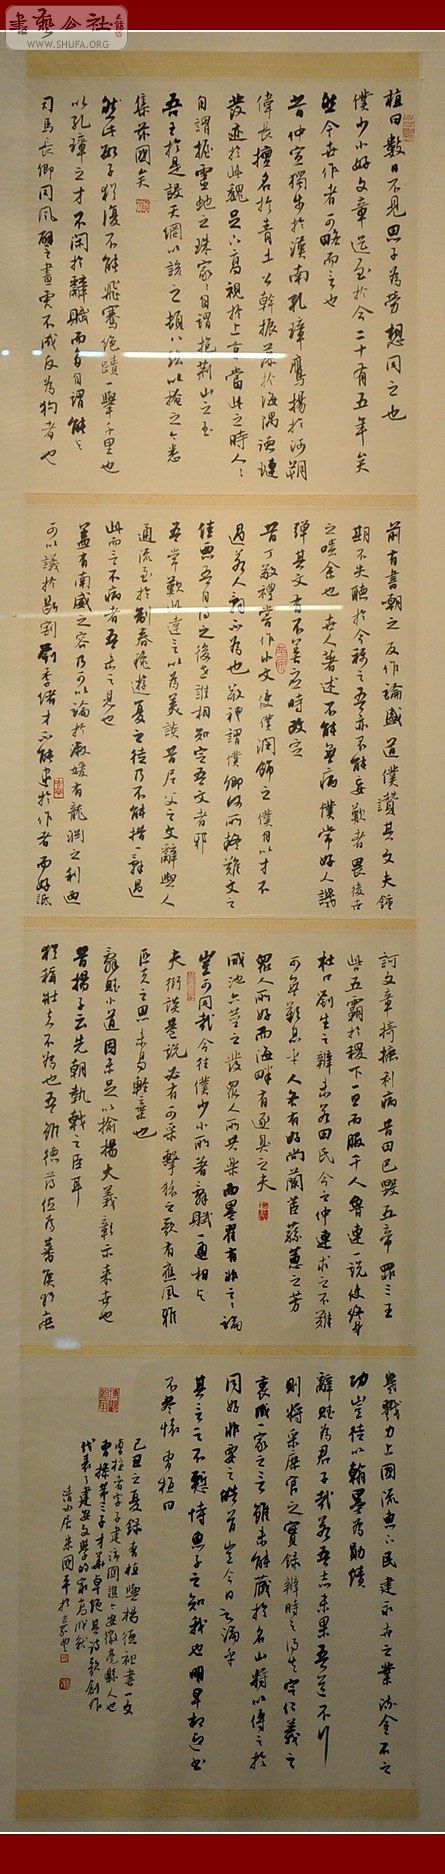 書藝公社
WWW.SHUFA.ORG
植曰數日不見思子為勞想同之也
僕少小好文章迄至於今二十有五年矣
然今世作者可略而言也
昔仲宣獨步於漢南孔璋鷹揚於河朔
偉長擅名於青土公幹振藻於海隅德璉
發迹於此魏足下高視於上京當此之時人人
自謂握靈蛇之珠家家自謂抱荊山之玉
吾王於是設天網以該之頓八紘以掩之今悉
集茲國矣
然此數子猶復不能飛騫絕蹟一舉千里也
以孔璋之才不閑於辭賦而多自謂能與
司馬長卿同風譬之畫虎不成反為狗者也
前有書嘲之反作論盛道僕讚其文夫鍾
期不失聽於今稱之吾亦不能妄歎者畏後世
之嗤余也世人著述不能無病僕常好人譏
彈其文有不善應時改定
昔丁敬禮嘗作小文使僕潤飾之僕自以才不
過若人辭不為也敬禮謂僕卿何所疑難文之
佳惡吾自得之後世誰相知定吾文者邪
吾常歎此達言以為美談昔尼父之文辭與人
通流至於制春秋游夏之徒乃不能措一辭過
此而言不病者吾未之見也
蓋有南威之容乃可以論於淑媛有龍淵之利乃
可以議於斷割劉季緒才不能逮於作者而好詆
訶文章掎摭利病昔田巴毀五帝罪三王
呰五霸於稷下一旦而服千人魯連一說使終身
杜口劉生之辯未若田氏今之仲連求之不難
可無歎息乎人各有好尚蘭茝蓀蕙之芳
眾人所好而海畔有逐臭之夫
咸池六莖之發眾人所共樂而墨翟有非之之論
豈可同哉今往僕少小所著辭賦一通相與
夫街談巷說必有可采擊轅之歌有應風雅
匹夫之思未易輕棄也
辭賦小道固未足以揄揚大義彰示來世也
昔揚子云先朝執戟之臣耳
猶稱壯夫不為也吾雖德薄位為蕃侯猶庶
幾戮力上國流惠下民建永世之業流金石之
功豈徒以翰墨為勛績
辭賦為君子哉若吾志未果吾道不行
則將采庶官之實錄辯時之得失定仁義之
衷成一家之言雖未能藏於名山將以傳之於
同好非要之皓首豈今日之論乎
其言之不慙恃惠子之知我也明早相迎書
不盡懷曹植曰
己丑之夏錄曹植與楊德祖書一文
曹植者字子建沛國譙今安徽亳縣人也
曹操第三子才華卓絕其詩歌創作
代表了建安文學的最高成就